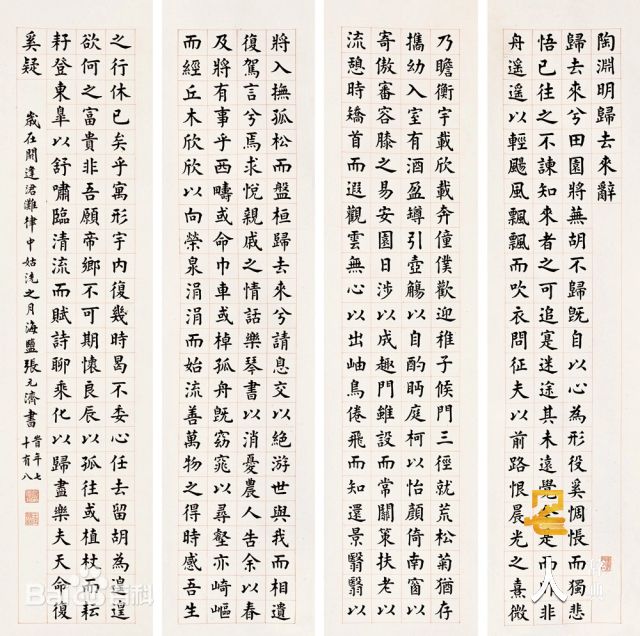 陶淵明歸去來辭
歸去來兮田園將蕪胡不歸既自以心為形役奚惆悵而獨悲
悟已往之不諫知來者之可追寔迷途其未遠覺今是而昨非
舟遙遙以輕颺風飄飄而吹衣問征夫以前路恨晨光之熹微
乃瞻衡宇載欣載奔僮僕歡迎稚子候門三徑就荒松菊猶存
攜幼入室有酒盈罇引壺觴以自酌眄庭柯以怡顏倚南窗以
寄傲審容膝之易安園日涉以成趣門雖設而常關策扶老以
流憩時矯首而遐觀雲無心以出岫鳥倦飛而知還景翳翳以
將入撫孤松而盤桓歸去來兮請息交以絕游世與我而相遺
復駕言兮焉求悅親戚之情話樂琴書以消憂農人告余以春
及將有事乎西疇或命巾車或棹孤舟既窈窕以尋壑亦崎嶇
而經丘木欣欣以向榮泉涓涓而始流善萬物之得時感吾生
之行休已矣乎寓形宇內復幾時曷不委心任去留胡為遑遑
欲何之富貴非吾願帝鄉不可期懷良辰以孤往或植杖而耘
耔登東皋以舒嘯臨清流而賦詩聊乘化以歸盡樂夫天命復
奚疑
歲在閼逢涒灘律中姑洗之月海鹽張元濟書
年七
十有八
Bai百科